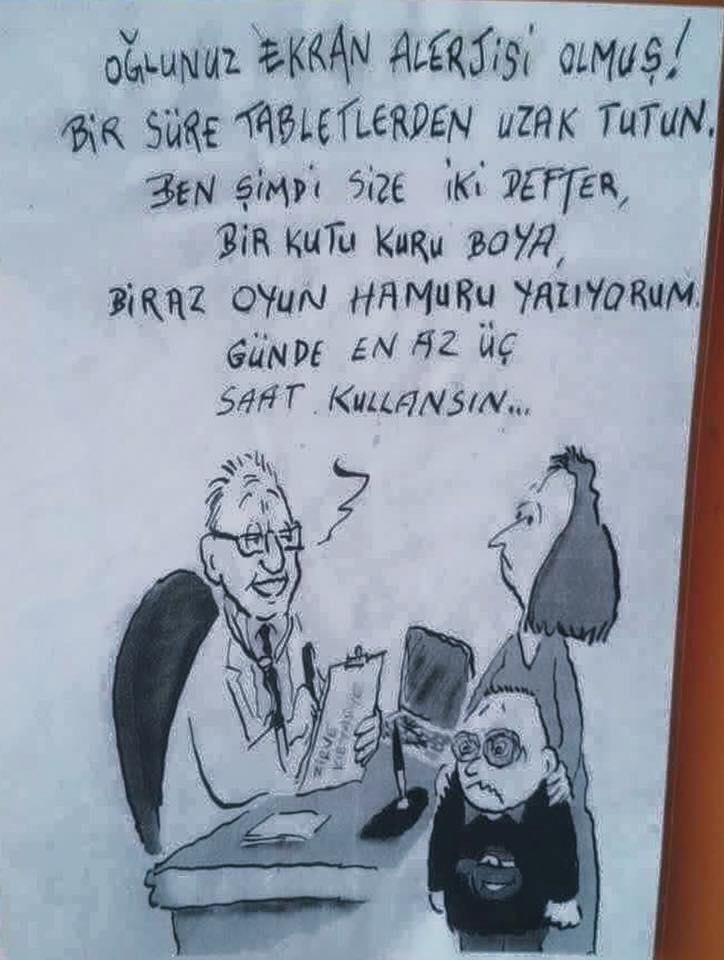 OĞLUNUZ EKRAN ALERJİSİ OLMUŞ!
BİR SÜRE TABLETLERDEN UZAK TUTUN.
BEN ŞİMDİ SİZE İKİ DEFTER,
BİR KUTU KURU BOYA,
BİRAZ OYUN HAMURU YAZIYORUM.
GÜNDE EN AZ ÜÇ
SAAT KULLANSIN...
ZİRVE
KIRTASİYE